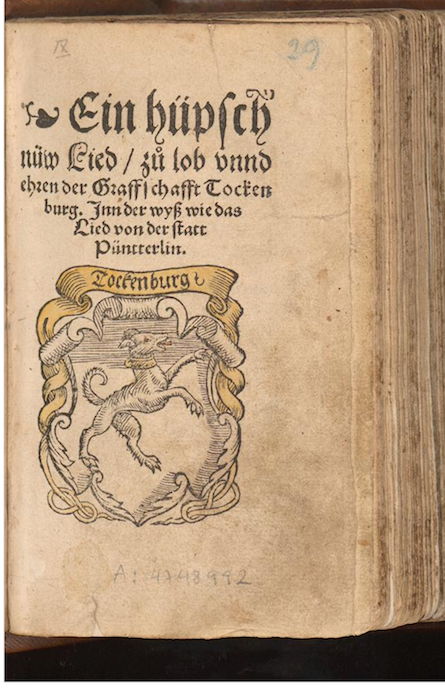 IX
29
Ein hüpsch
nüw Lied / zů lob vnnd
ehren der Graffschafft Tocken
burg. Jnn der wyß wie das
Lied von der statt
Püntterlin.
Tockenburg
A: 4748992